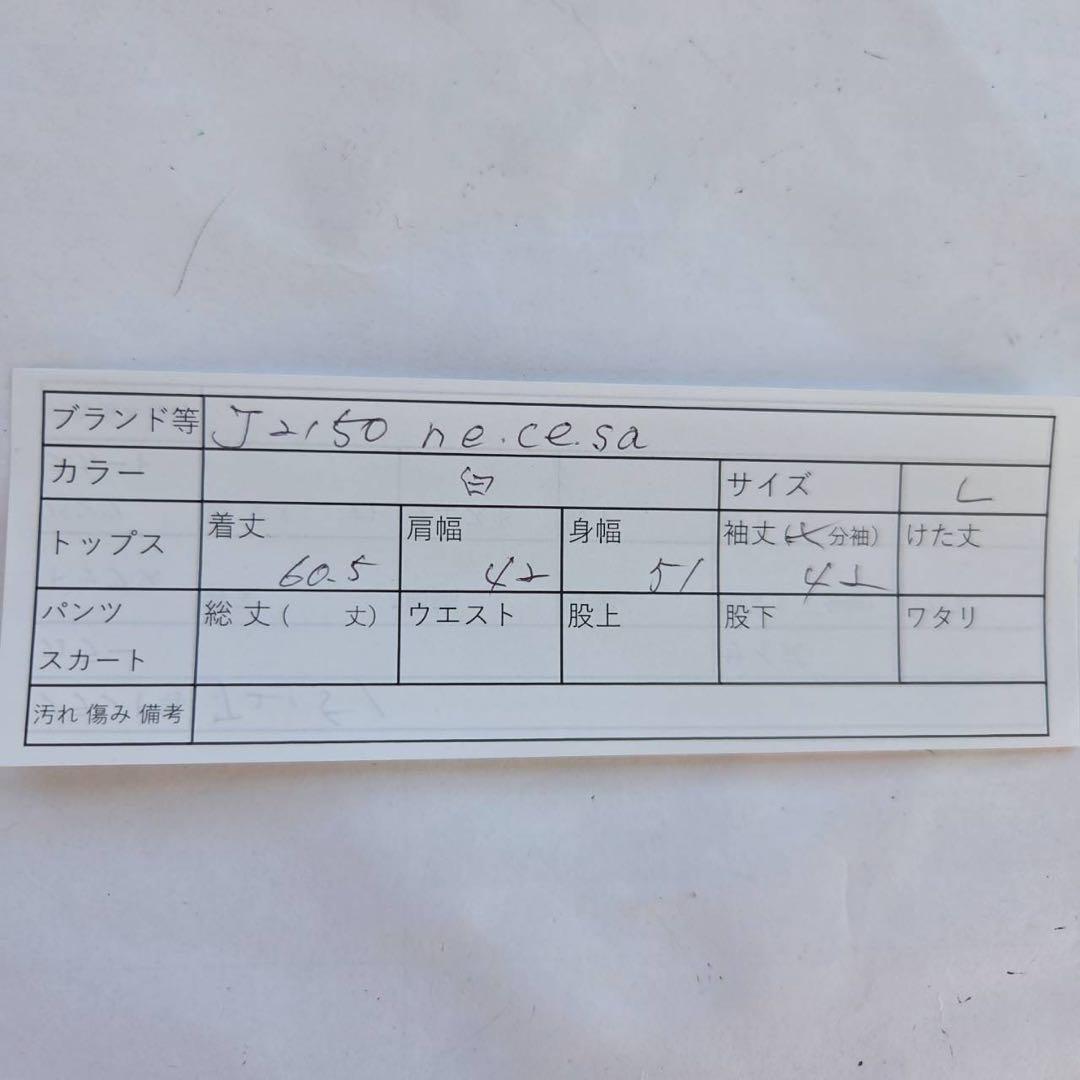 ブランド等 J2150 ne.ce.sa
カラー サイズ L
トップス 着丈 60.5 肩幅 42 身幅 51 袖丈(七分袖) 42 けた丈
パンツ スカート 総丈( 丈) ウエスト 股上 股下 ワタリ
汚れ 傷み 備考